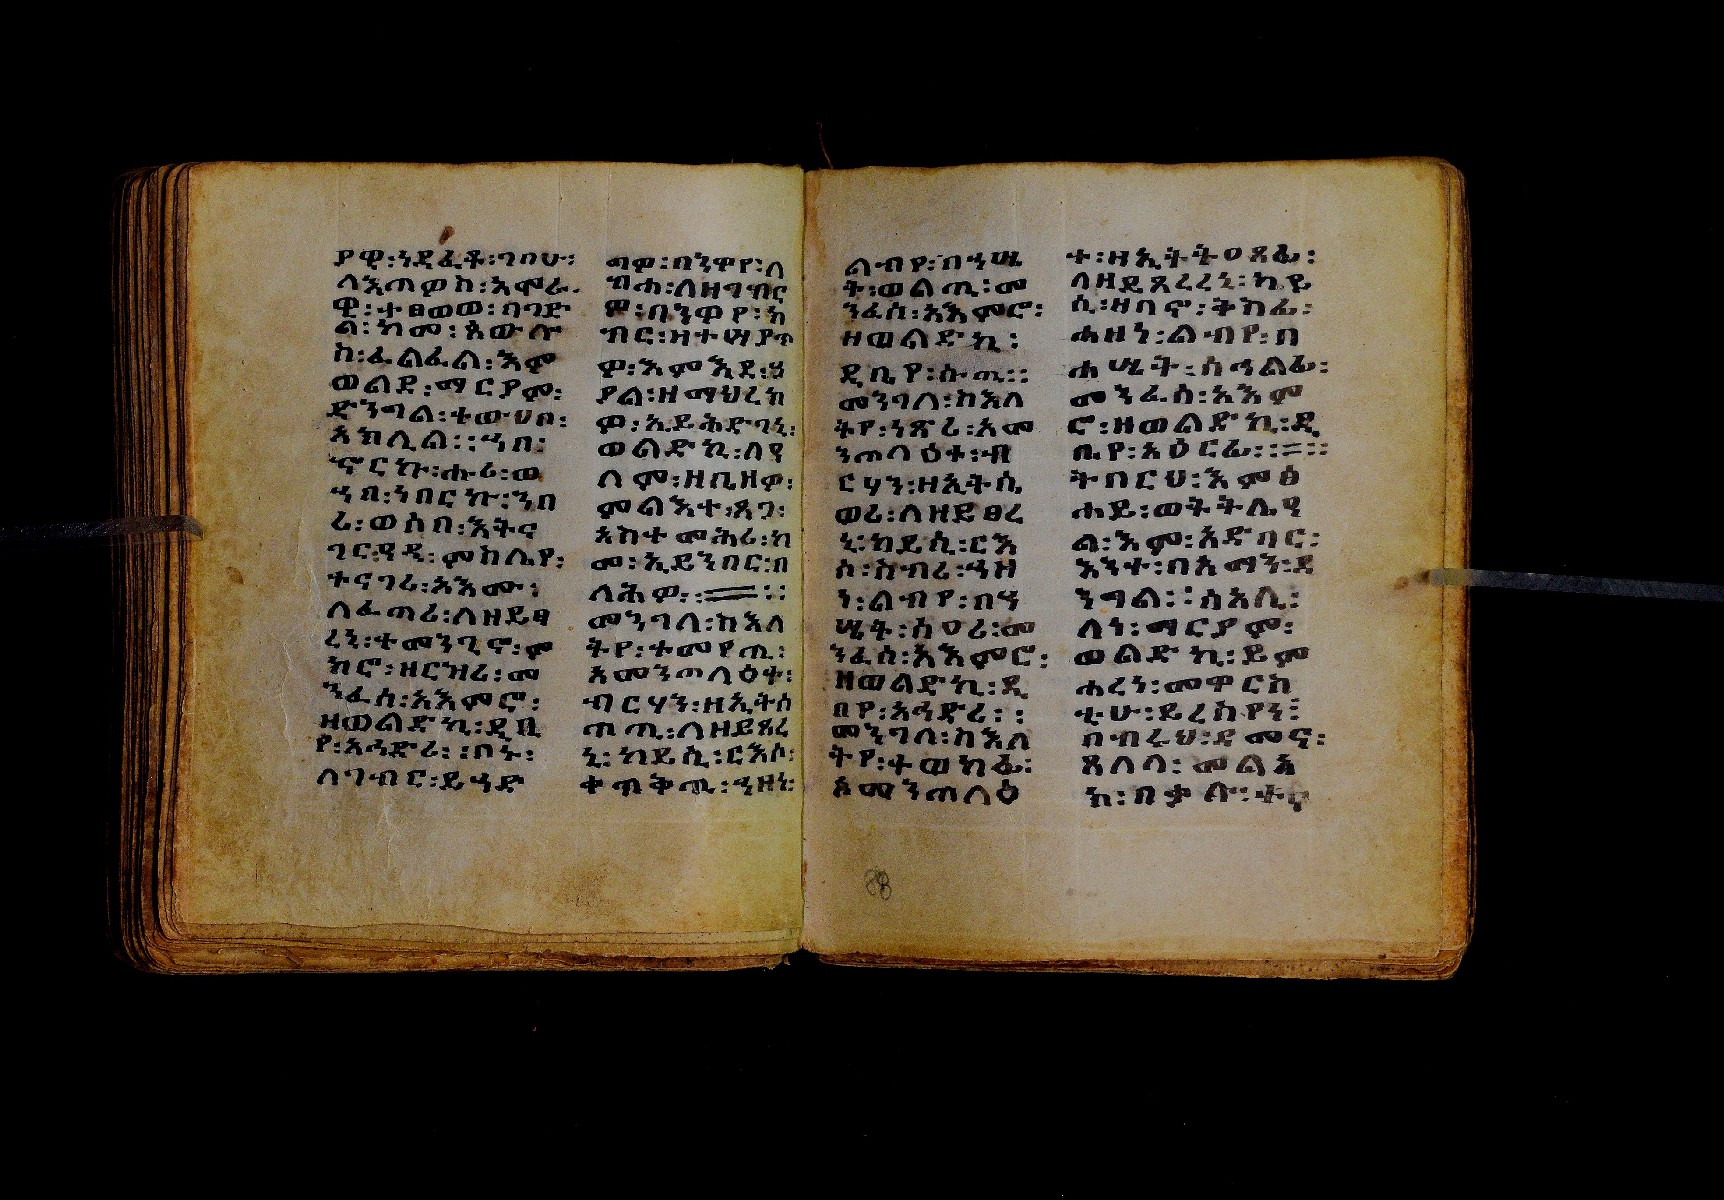 ያዊ፡ነዲፈቶ፡ገቦሁ፡
ለእጠዎከ፡አሞራ
ዊ፡ተፀወወ፡በገድ
ል፡ከመ፡ጸውሎ
ከ፡ፈልፈል፡እም
ወልደ፡ማርያም፡
ድንግል፡ተውህበ፡
አክሊል፡፡ኀበ፡
ኖርኩ፡ሑሪ፡ወ
ኀበ፡ነበርኩ፡ንበ
ሪ፡ወሰበ፡አትና
ገር፡ዳዲ፡መከሌየ፡
ተናገሪ፡አእሙ፡
ለፈጣሪ፡ለዘይፃ
ረኒ፡ተመንጊኖ፡ም
ክሮ፡ዘርዝሪ፡መ
ንፈሰ፡አእምሮ፡
ዘወልድኪ፡ዲበ
የ፡አኃድሪ፡፡ቦኑ፡
ለገብር፡ይኄድ
ግዎ፡በንዋየ፡ለ
ብሐ፡ለዘገብር
ዎ፡በንዋየ፡ክ
ብር፡ዘተሣያጥ
ዎ፡እምእደ፡ሃ
ያል፡ዘማህረክ
ዎ፡ኢይሕድገኒ፡
ወልድኪ፡ለዓ
ለም፡ዘቤዘዎ፡
ምልእተ፡ጸጋ፡
አከተመሕሪ፡ከ
መ፡ኢይንበር፡በ
ላሕዎ፡፡
መንገለ፡ከአለ
ትየ፡ተመየጢ፡
አመንጠላዕተ፡
ብርሃን፡ዘኢትሰ
ጠጢ፡ለዘይጸረ
ኒ፡ከይሲ፡ርእሶ፡
ተጥቅጢ፡ኀዘነ፡
ልብየ፡በኀሤ
ት፡ወልጢ፡መ
ንፈሰ፡አእምሮ፡
ዘወልድኪ፡
ዲቤየ፡ሱጢ፡፡
መንገለ፡ከአለ
ትየ፡ነጽሪ፡እመ
ንጠላዕተ፡ብ
ርሃን፡ዘኢትሴ
ወሪ፡ለዘይፀረ
ኒ፡ከይሲ፡ርእ
ሰ፡ስብሪ፡ኃዘ
ነ፡ልብየ፡በሃ
ሤት፡ሰዐሪ፡መ
ንፈሰ፡አእምሮ፡
ዘወልድኪ፡ዲ
በየ፡አኃድሪ፡፡
መንገለ፡ከአለ
ትየ፡ተወከፊ፡
እመንጠላዕ
ተ፡ዘኢትትዐጸፊ፡
ለዘይጸረረኒ፡ከይ
ሲ፡ዘባኖ፡ትከፊ፡
ሐዘነ፡ልብየ፡በ
ሐሤት፡ሰኀልፊ፡
መንፈሰ፡አእም
ሮ፡ዘወልድኪ፡ዲ
ቤየ፡አዕርፊ፡፡
ትበርህ፡እምፀ
ሐይ፡ወትትሌዓ
ል፡እም፡አድባር፡
አንተ፡በአማን፡ደ
ንግል፡፡ሰአሊ፡
ለነ፡ማርያም፡
ወልድኪ፡ይም
ሐረነ፡መዋርከ
ቲሁ፡ይረስየነ፡
በብሩህ፡ደመና፡
ጸለለ፡መልአ
ከ፡በቃሉ፡ተና